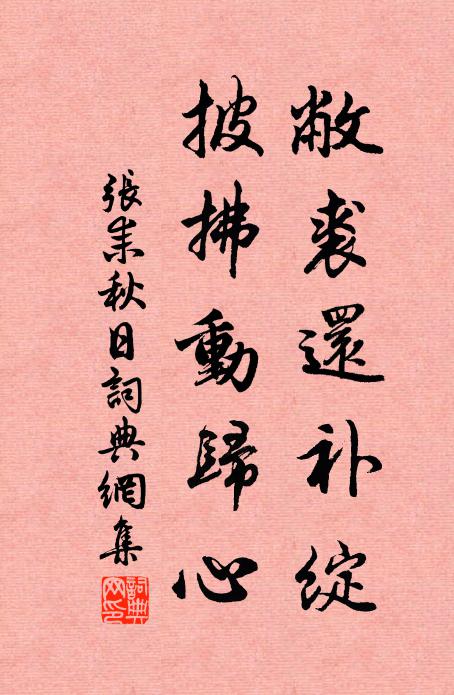 敝裘還补綻
披拂動歸心
張耒秋日詞典網集
詞典網印